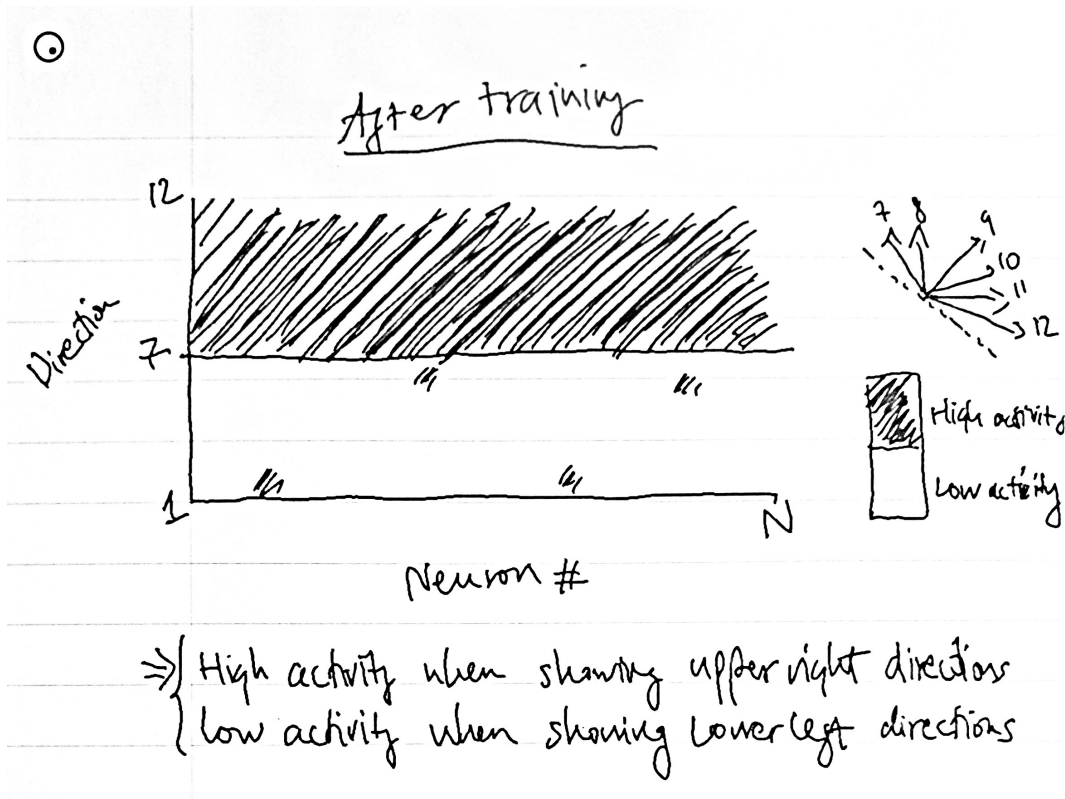 After training
12
7
1
Direction
N
Neuron #
7
8
9
10
11
12
High activity
Low activity
⇒ { High activity when showing upper right directions
Low activity when showing Lower left directions